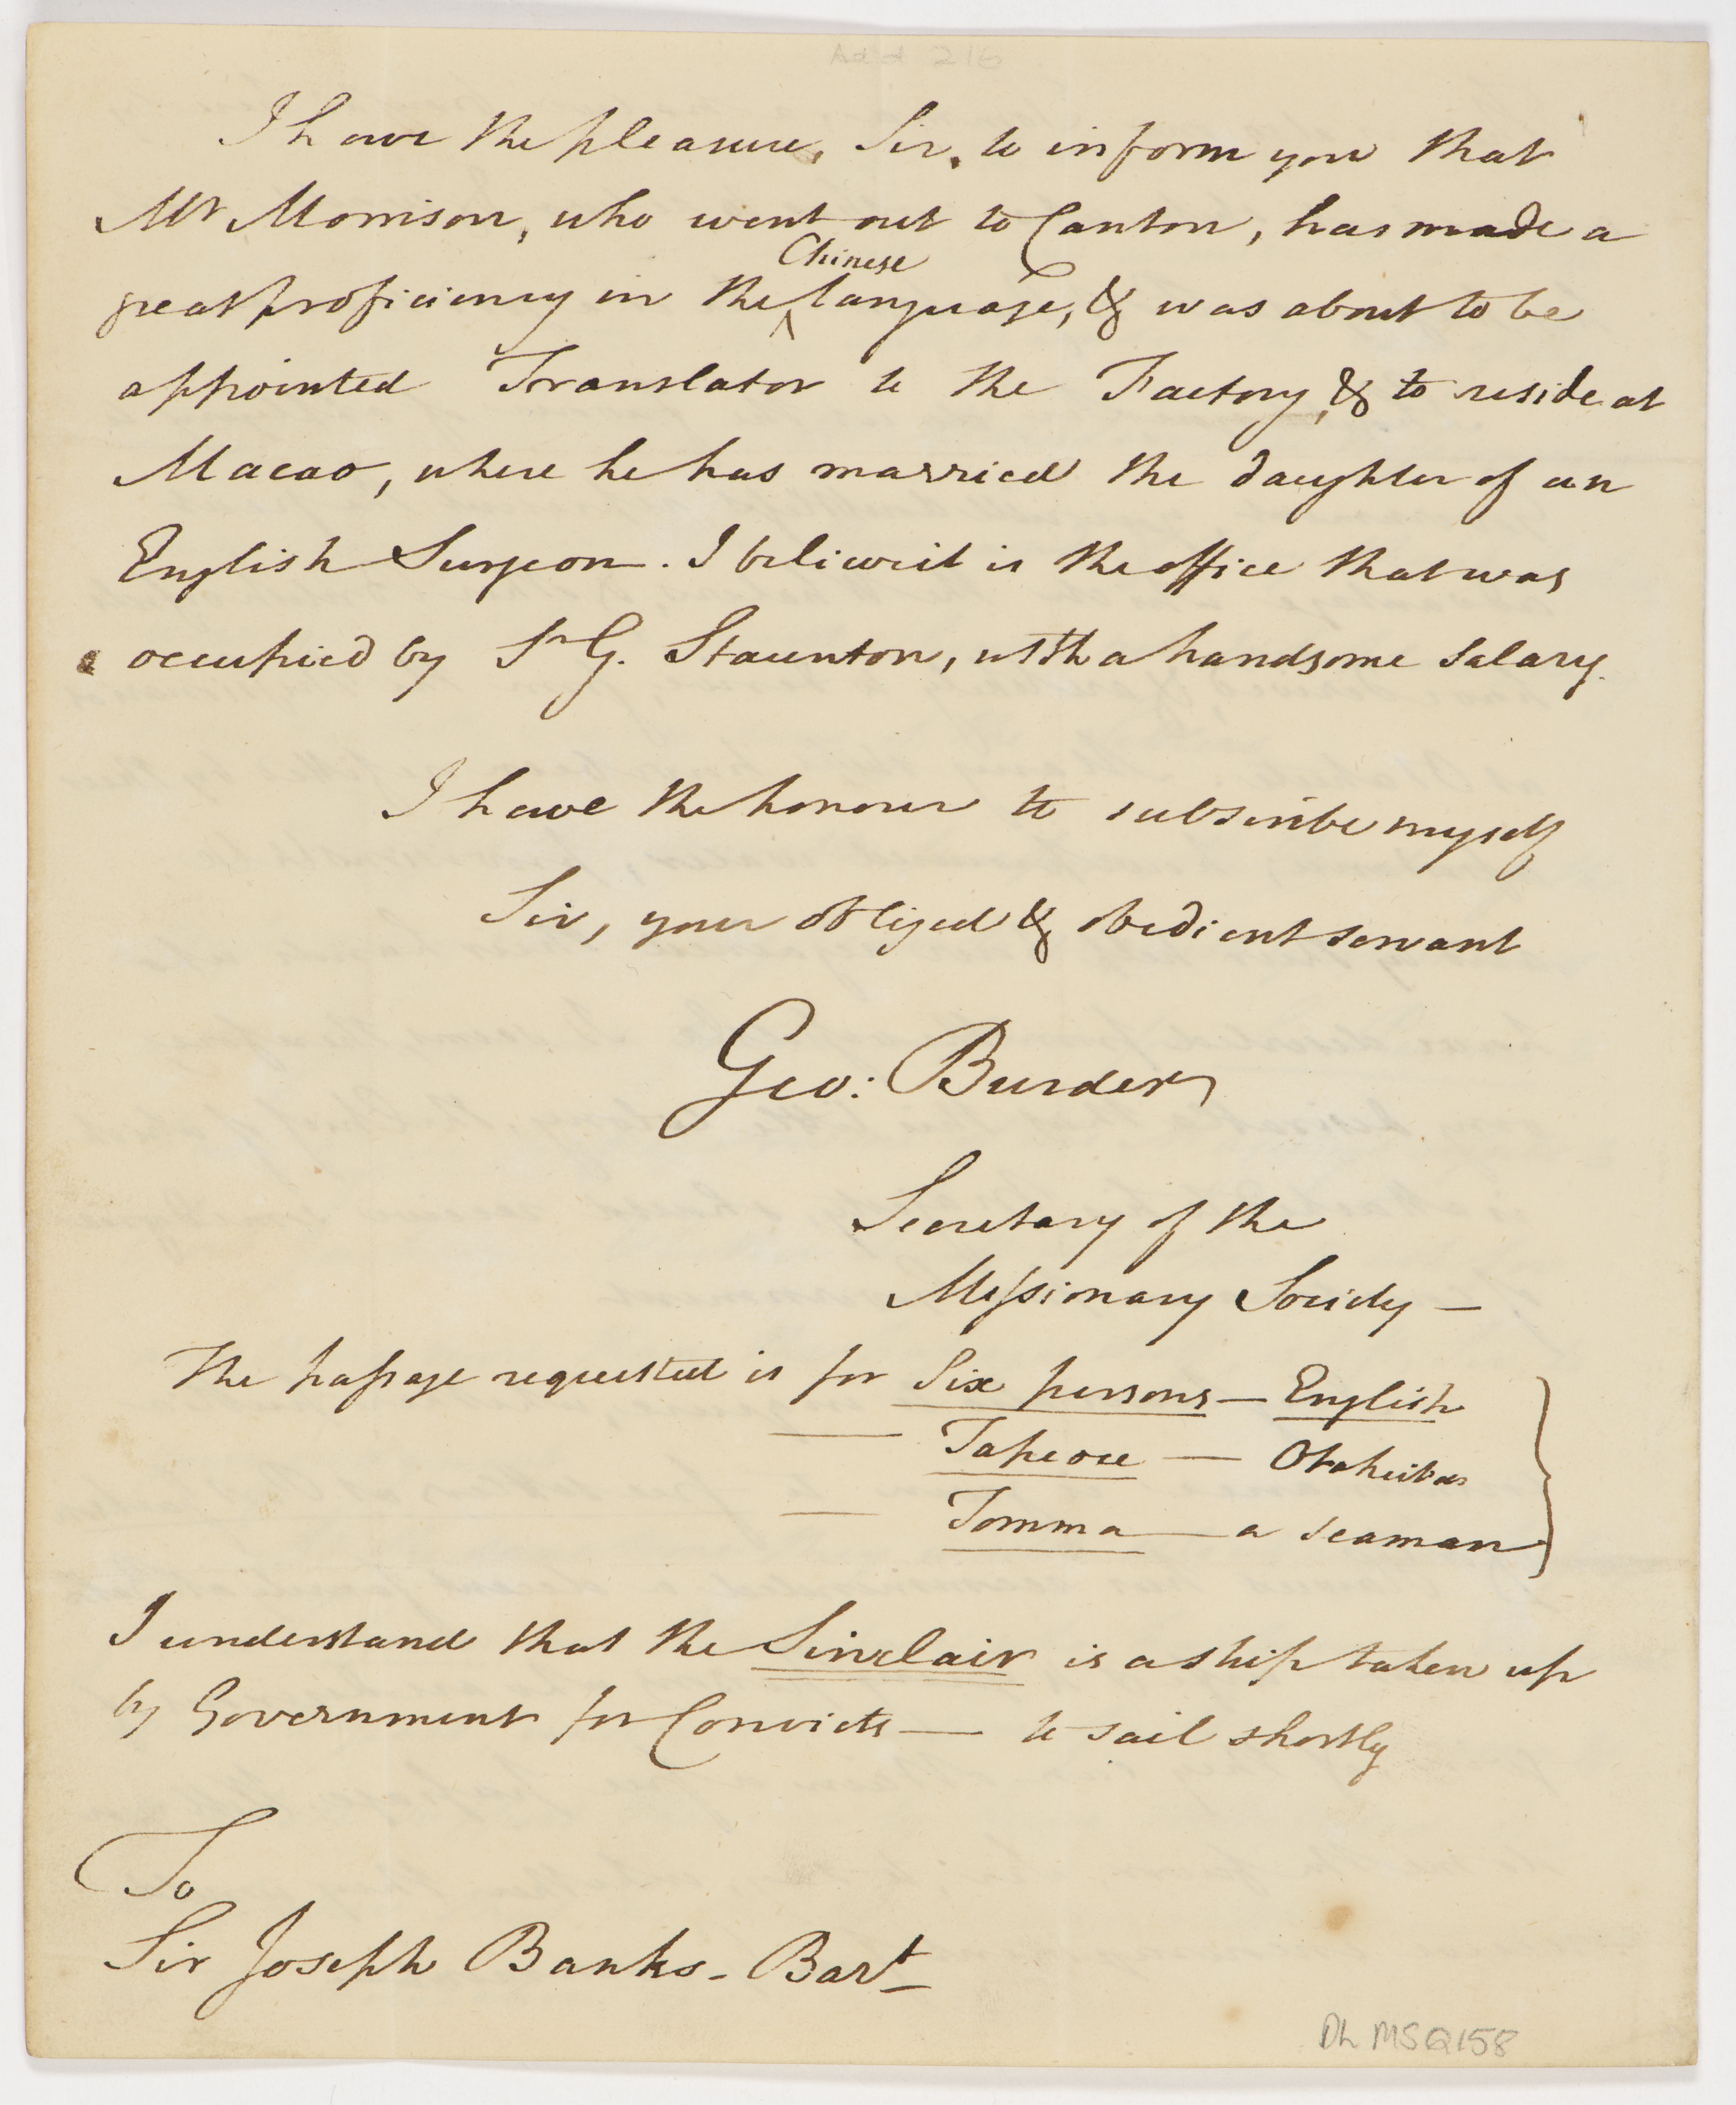 Add 216
I have the pleasure, Sir, to inform you that
Mr Morrison, who went out to Canton, has made a
Chinese
great proficiency in the ^ language, & was about to be
appointed Translator to the Factory, & to reside at
Macao, where he has married the daughter of an
English Surgeon. I believe it is the office that was
occupied by Sr G. Staunton, with a handsome salary.
I have the honour to subscribe myself
Sir, your obliged & obedient servant
Geo: Burder
Secretary of the
Missionary Society —
The passage requested is for Six persons — English
— Tapeoe — Otaheitan
— Tomma — a seaman
I understand that the Sinclair is a ship taken up
by Government for Convicts — to sail shortly
To
Sir Joseph Banks - Bart
DL MSQ158